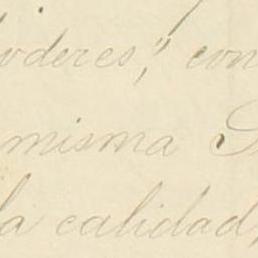 poderes," con
misma S
la calidad,